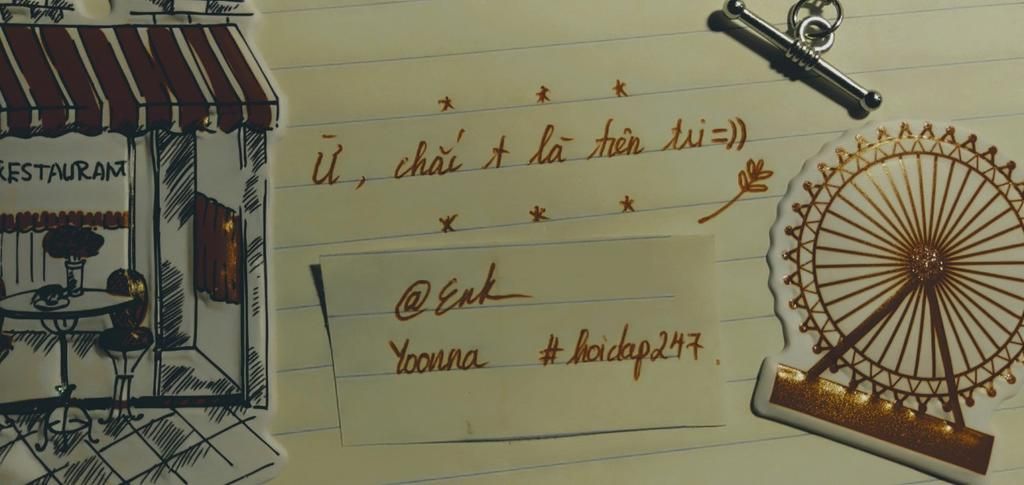 RESTAURANT
Ừ, chắc t là tiên tri =))
@Enk
Yoonna #hoidap247